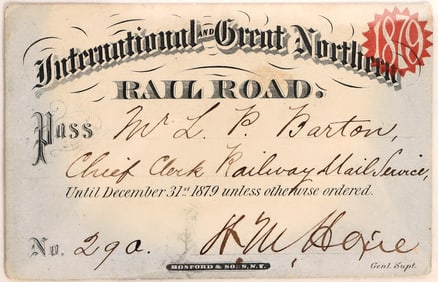 International AND Great Northern
1879
RAIL ROAD.
Pass Mr L. P. Barton,
Chief Clerk Railway Mail Service,
Until December 31st 1879 unless otherwise ordered.
No. 290. H. M. Hoxie
Genl. Supt.
HOSFORD & SONS, N.Y.